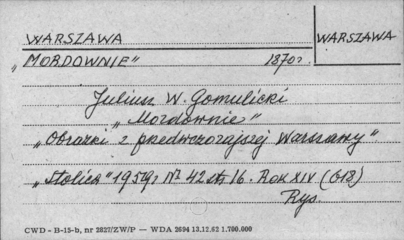 WARSZAWA
WARSZAWA
„MORDOWNIE" 1870 r.
Juliusz W. Gomulicki
„Mordownie"
„Obrazki z przedwczorajszej Warszawy"
„Stolica" 1959 r. Nr 42 str 16. Rok XIV (618)
Rys.
CWD - B-15-b, nr 2827/ZW/P — WDA 2694 13.12.62 1.700.000